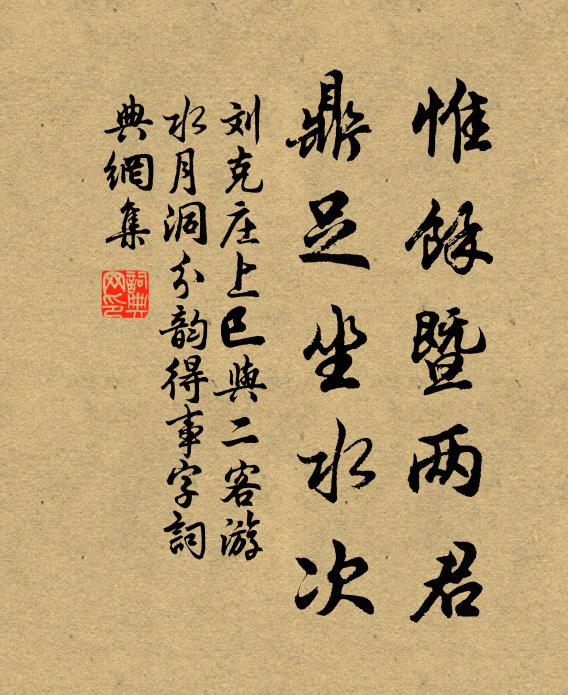 惟餘暨两君
鼎足坐水次
刘克庄上巳與二客游
水月洞分韵得事字詞
典網集
詞典网印